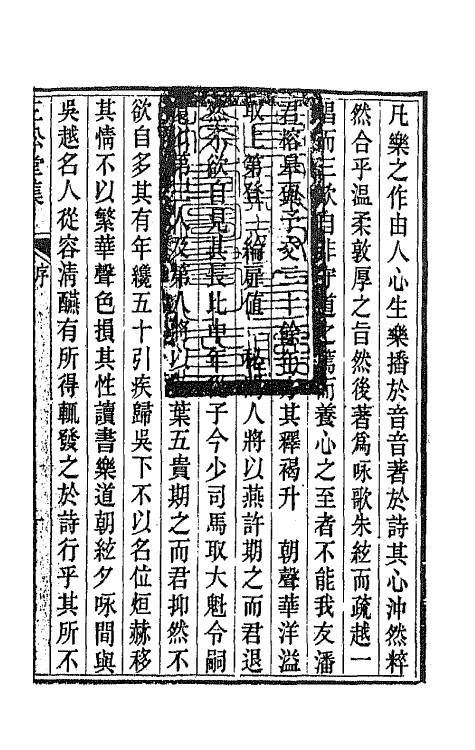 凡樂之作由人心生樂播於音音著於詩其心沖然粹
然合乎溫柔敦厚之旨然後著為咏歌朱絃而疏越一
唱而三歎自非守道之篤而養心之至者不能我友潘
君榕皋與予交三十餘年其釋褐升 朝聲華洋溢
取上第登 綸扉值 人將以燕許期之而君退
然不欲自見其長比中年從子今少司馬取大魁令嗣
第三人及第人將以 葉五貴期之而君抑然不
欲自多其有年纔五十引疾歸吳下不以名位烜赫移
其情不以繁華聲色損其性讀書樂道朝絃夕咏間與
吳越名人從容清醼有所得輒發之於詩行乎其所不
三松堂集 序